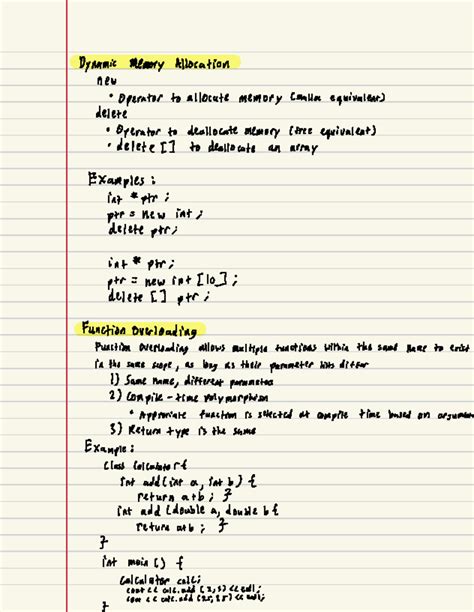 Dynamic Memory Allocation
new
• Operator to allocate memory (malloc equivalent)
delete
• Operator to deallocate memory (free equivalent)
• delete [] to deallocate an array
Examples:
int * ptr;
ptr = new int;
delete ptr;
int * ptr;
ptr = new int [10];
delete [] ptr;
Function Overloading
Function Overloading allows multiple functions within the same name to exist
in the same scope, as long as their parameter lists differ
1) Same name, different parameter
2) Compile-time Polymorphism
• Appropriate function is selected at compile time based on argumen
3) Return type is the same
Example:
Class Calculator {
int add(int a, int b) {
return a+b; }
int add (double a, double b {
return a+b; }
}
int main () {
Calculator calc;
cout << calc.add (2,5) << endl;
cout << calc.add << endl;
}